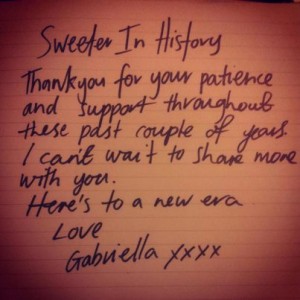 Sweeter In History
Thankyou for your patience
and support throughout
these past couple of years.
I can't wait to share more
with you.
Here's to a new era
Love
Gabriella xxxx